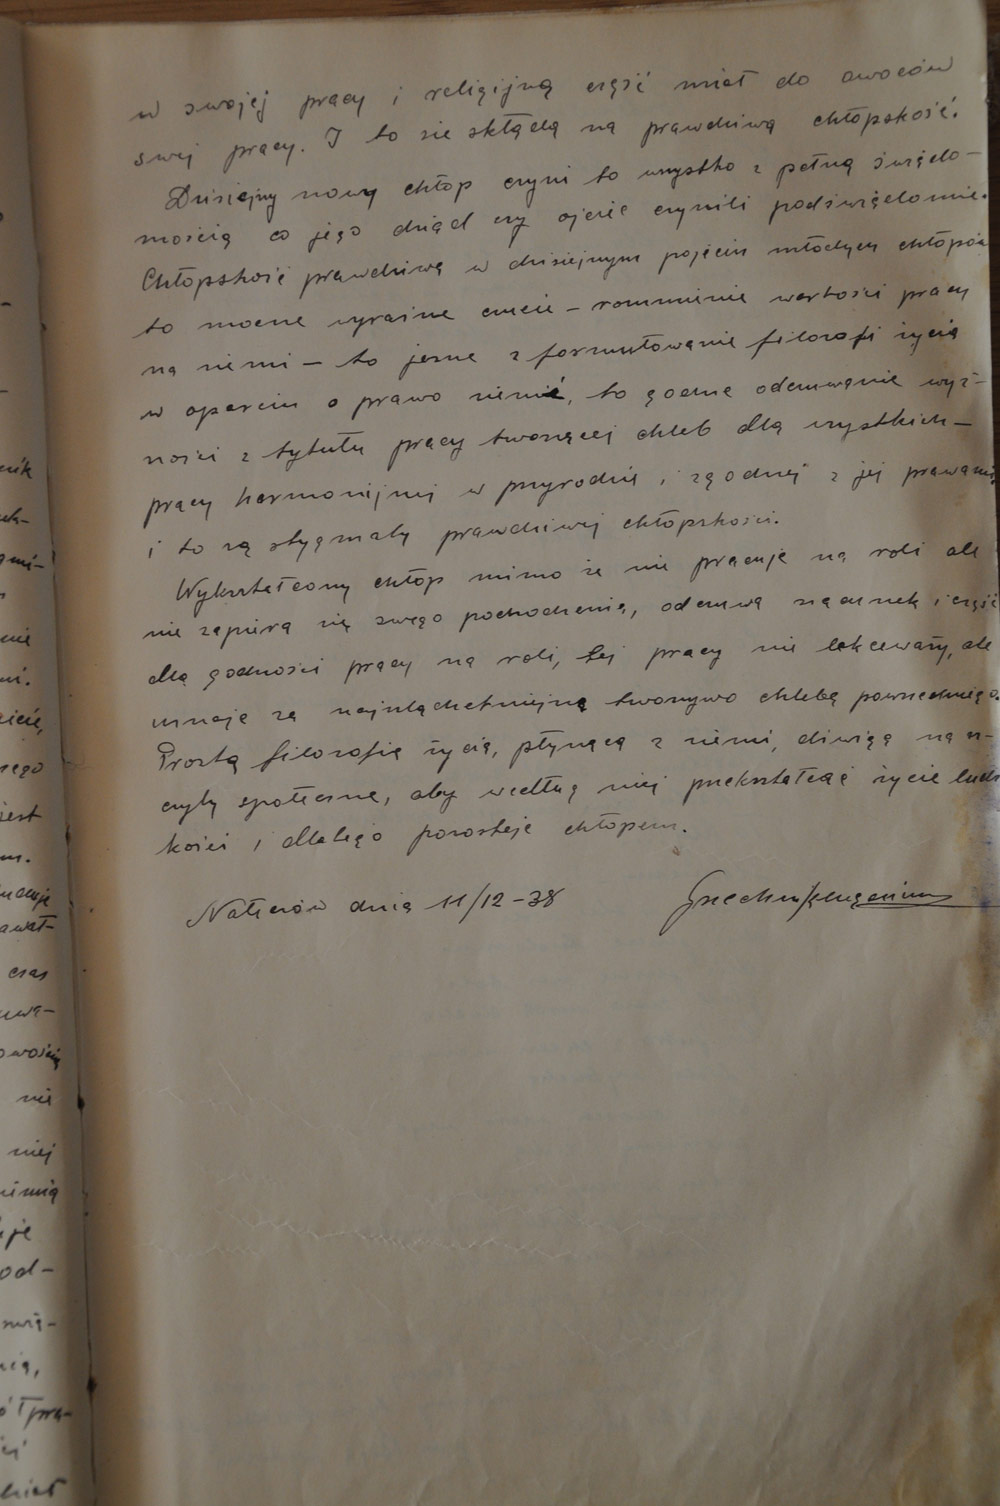 w swojej pracy i religijną cześć miał do owoców
swej pracy. I to sie składa na prawdziwą chłopskość.
Dzisiejszy nowy chłop czyni to wszystko z pełną świado-
mością co jego dziad czy ojciec czynili podświadomie.
Chłopskość prawdziwa w dzisiejszym pojęciu młodych chłopów
to mocne wyraźne czucie – rozumienie wartości pracy
na ziemi – to jasne sformułowanie filozofi życia
w oparciu o prawo ziemi, to godne odczuwanie wyż-
ności z tytułu pracy tworzącej chleb dla wszystkich –
pracy harmonijnej w przyrodzie i zgodnej z jej prawami
i to są stygmaty prawdziwej chłopskości.
Wykształcony chłop mimo że nie pracuje na roli ale
nie zapiera się swego pochodzenia, odczuwa szacunek i cześć
dla godności pracy na roli, tej pracy nie lekceważy, ale
uznaje za najszlachetniejszą tworzywo chleba powszedniego.
Prostą filozofię życia, płynącą z ziemi, dźwiga na sz-
czyty społeczne, aby według niej przekształcać życie ludz
kości i dlatego pozostaje chłopem.
dnia 11/12 – 38
nik
nie
jest
czas
nie
niej
uje
od-